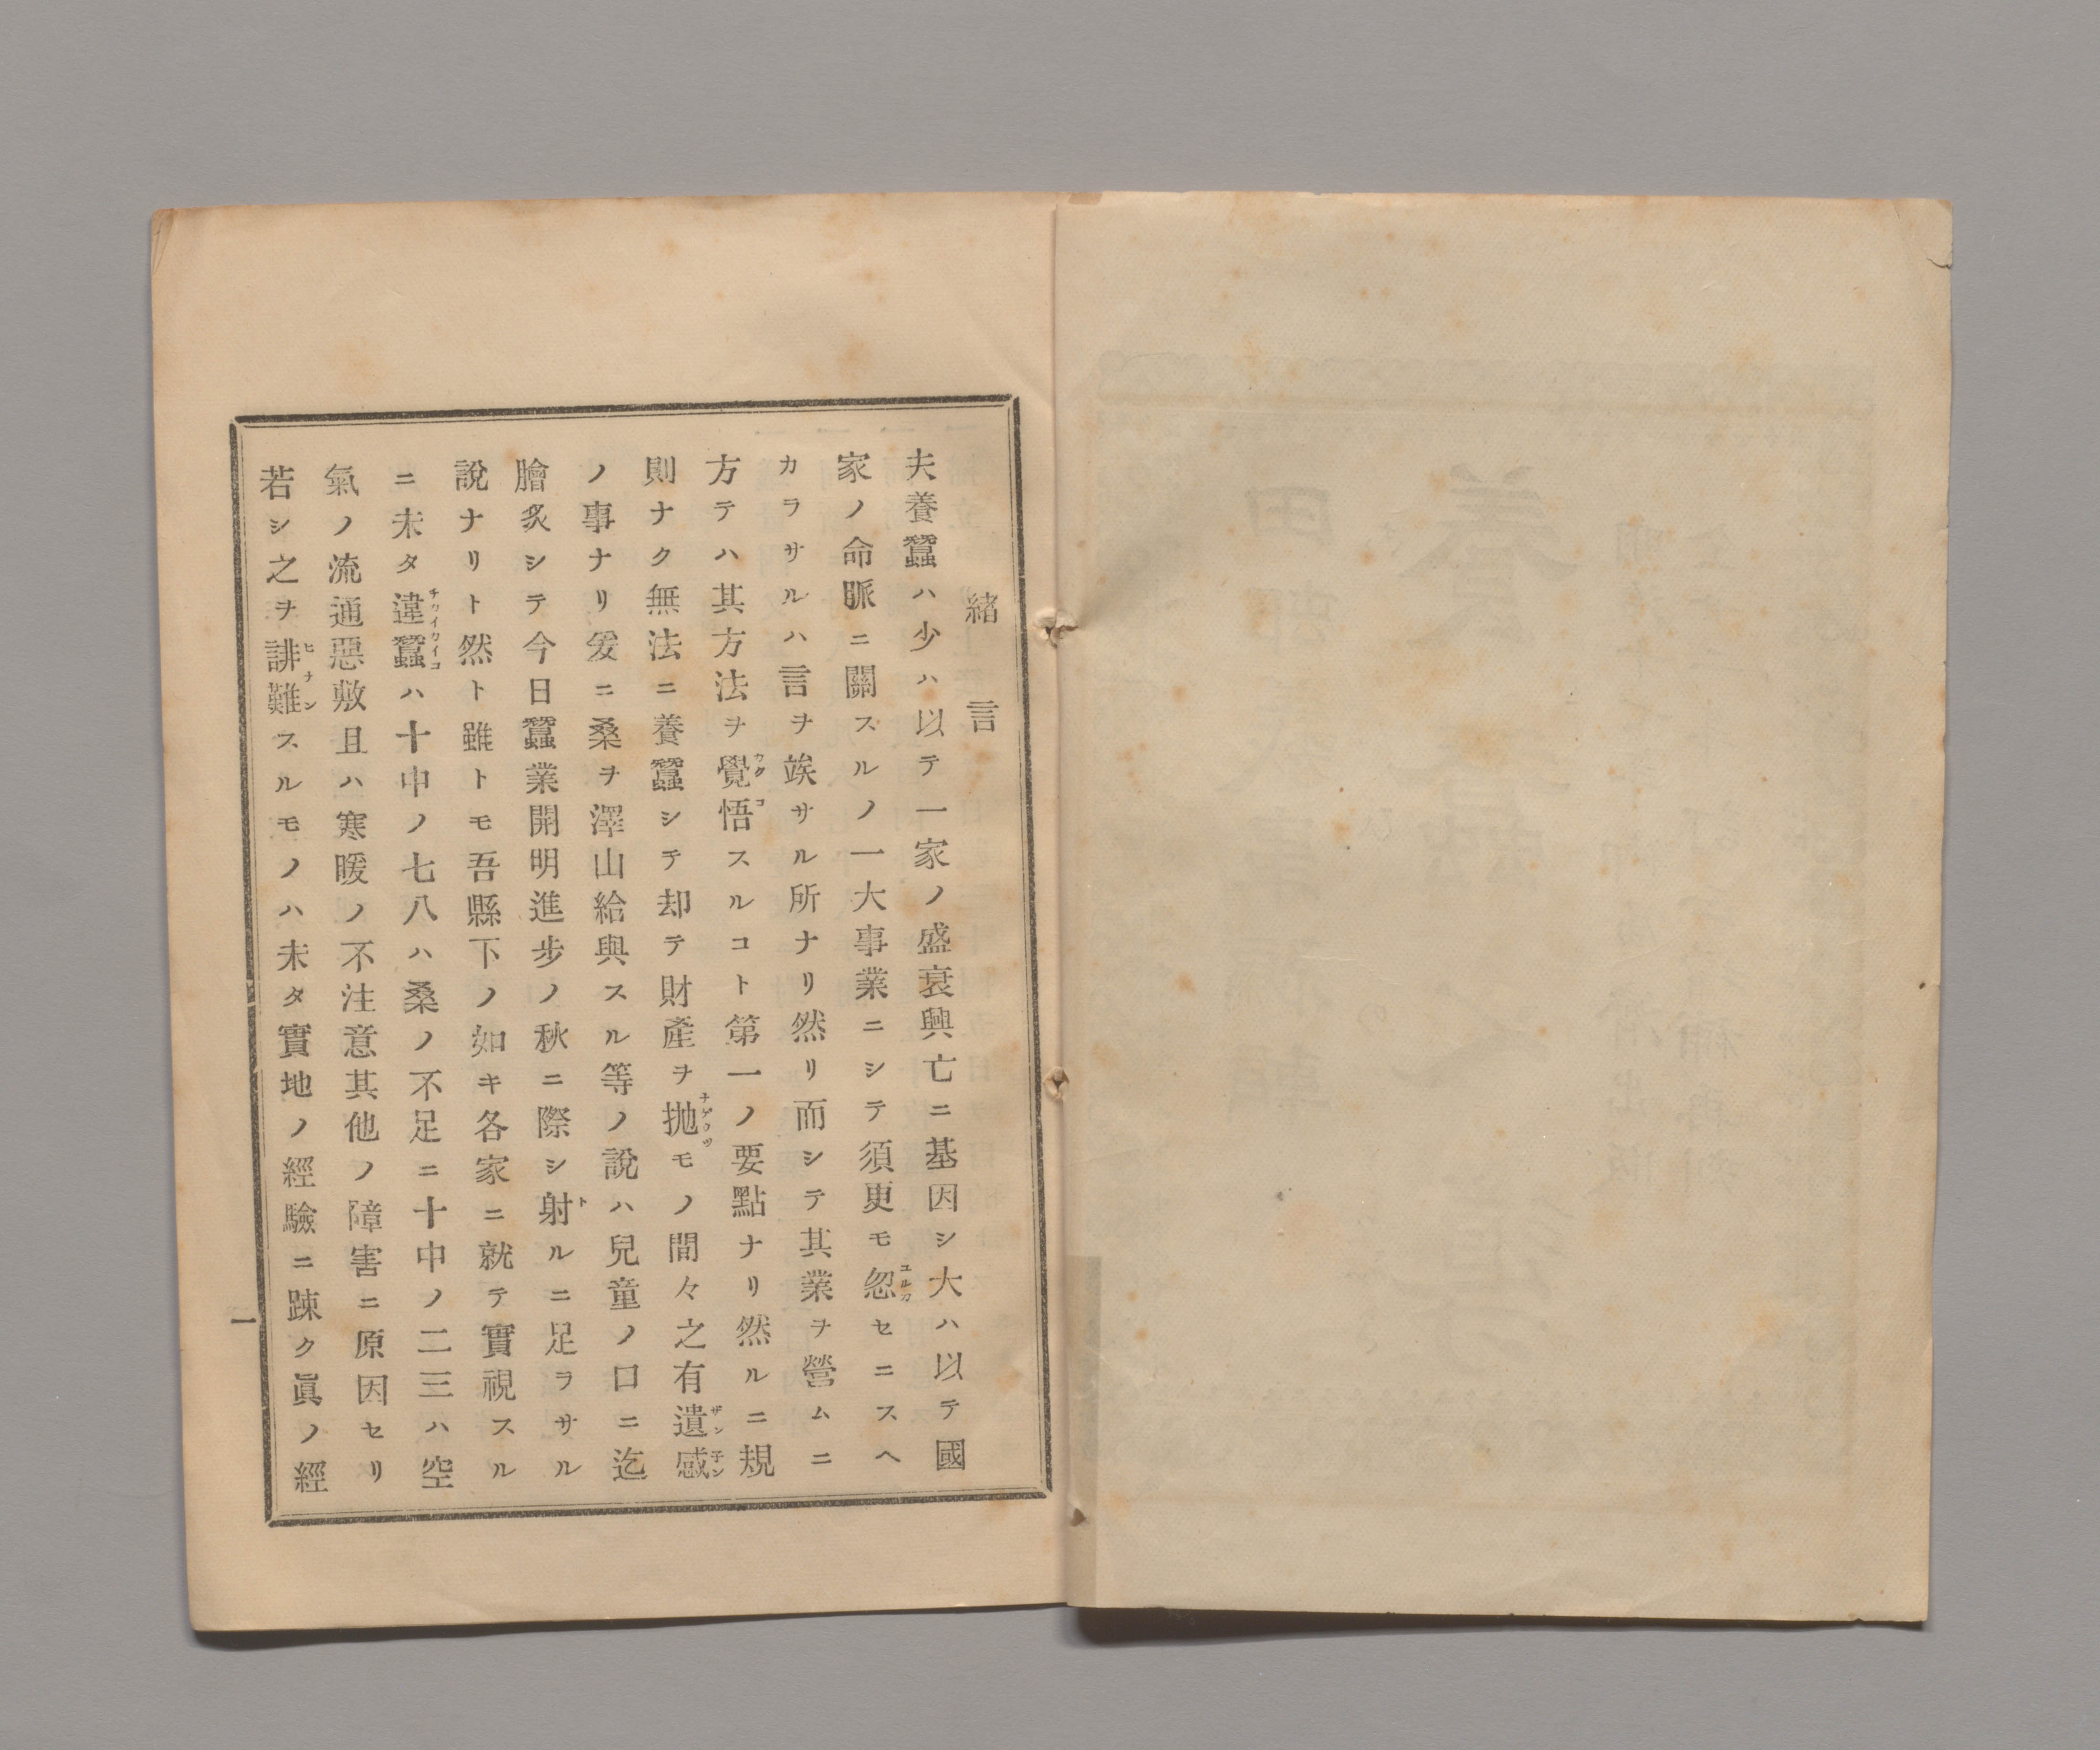 緒言
夫養蠶ハ少ハ以テ一家ノ盛衰興亡ニ基因シ大ハ以テ國
家ノ命脈ニ關スルノ一大事業ニシテ須更モ忽セニスヘ
カラサルハ言ヲ竢サル所ナリ然リ而シテ其業ヲ營ムニ
方テハ其方法ヲ覺悟スルコト第一ノ要點ナリ然ルニ規
則ナク無法ニ養蠶シテ却テ財產ヲ抛モノ間々之有遺感
ノ事ナリ爰ニ桑ヲ澤山給與スル等ノ說ハ兒童ノ口ニ迄
膾炙シテ今日蠶業開明進步ノ秋ニ際シ射ルニ足ラサル
說ナリト然ト雖トモ吾縣下ノ如キ各家ニ就テ實視スル
ニ未タ違蠶ハ十中ノ七八ハ桑ノ不足ニ十中ノ二三ハ空
氣ノ流通惡敷且ハ寒暖ノ不注意其他ノ障害ニ原因セリ
若シ之ヲ誹難スルモノハ未タ實地ノ經驗ニ踈ク眞ノ經
一